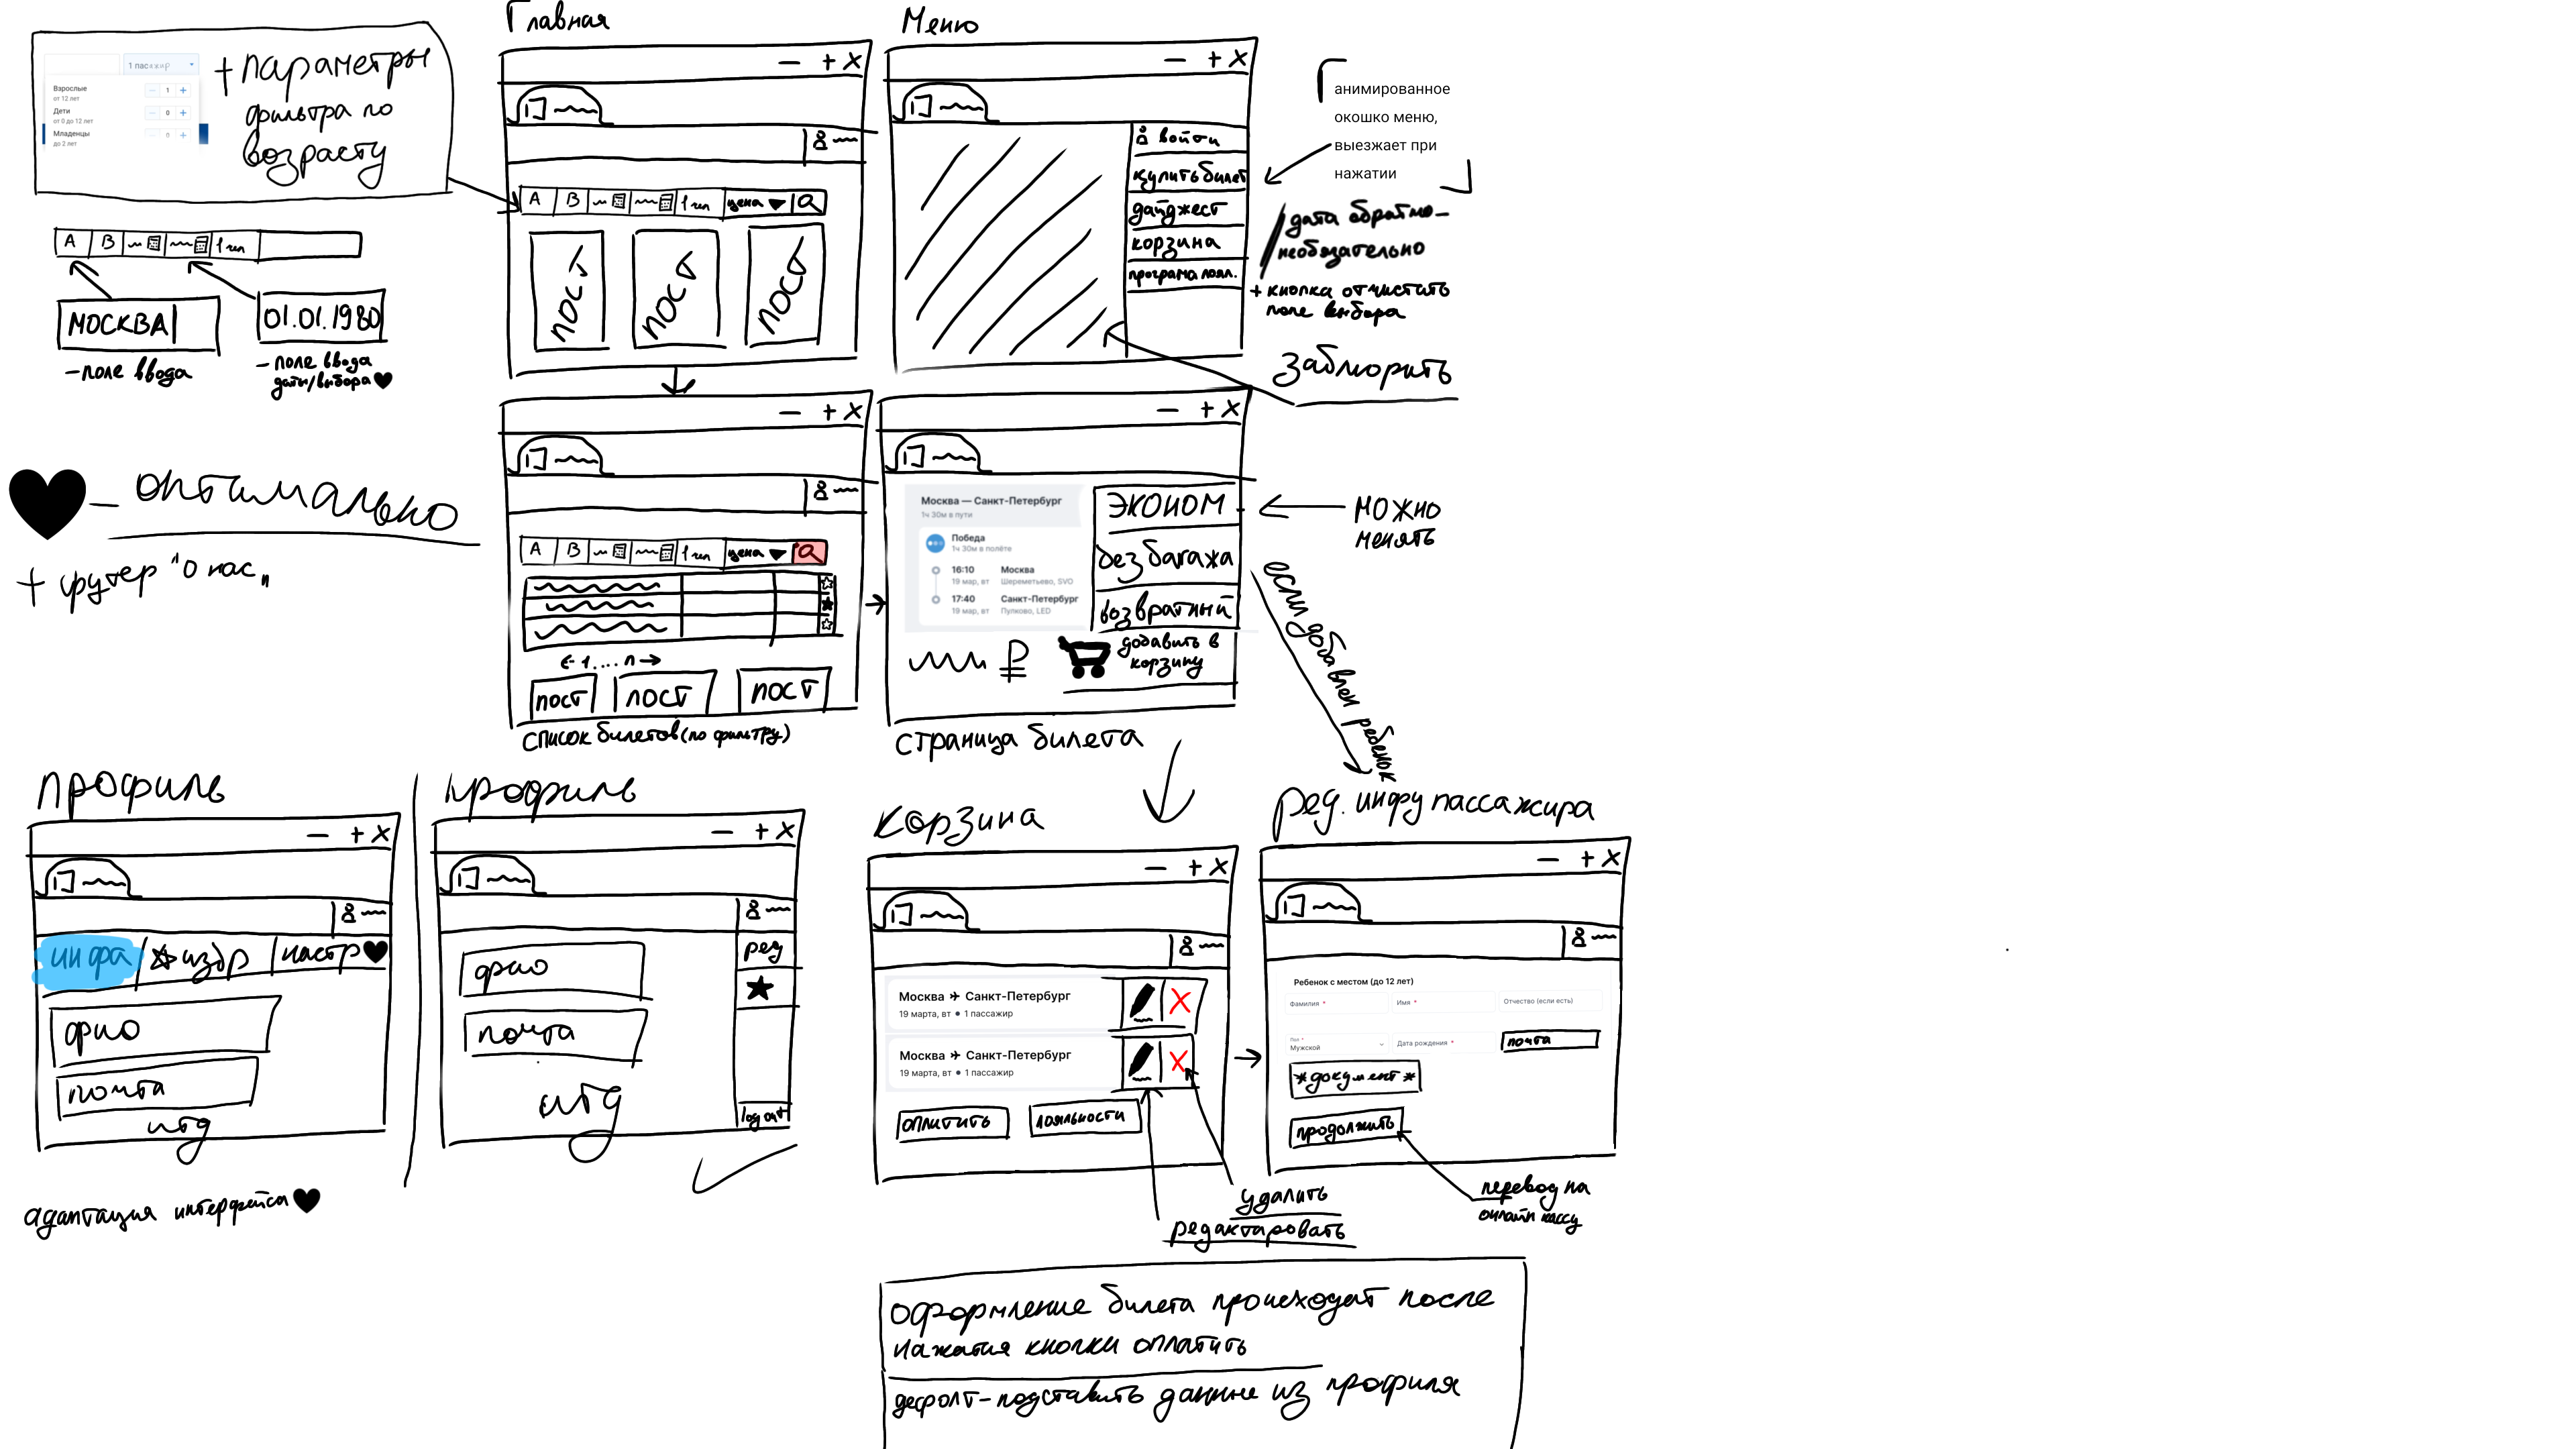 1 пассажир
Взрослые
от 12 лет
1
Дети
от 0 до 12 лет
0
Младенцы
до 2 лет
0
+ параметры
фильтра по
возрасту
A B 1 чел
МОСКВА
- поле ввода
01.01.1980
- поле ввода
даты/выбора ♥
♥ - оптимально
+ футер "о нас"
Главная
- + X
A B 1 чел цена
пост
пост
пост
Меню
- + X
войти
купить билет
дайджест
корзина
програма лоял.
анимированное
окошко меню,
выезжает при
нажатии
дата обратно-
необязательно
+ кнопка отчистить
поле выбора
заблюрить
- + X
A B 1 чел цена
← 1....n →
пост
пост
пост
список билетов (по фильтру)
- + X
Москва — Санкт-Петербург
1ч 30м в пути
Победа
1ч 30м в полёте
16:10 Москва
19 мар, вт Шереметьево, SVO
17:40 Санкт-Петербург
19 мар, вт Пулково, LED
ЭКОНОМ
без багажа
возвратный
₽
добавить в
корзину
страница билета
можно
менять
если добавлен ребенок
профиль
- + X
инфа
избр
настр ♥
фио
почта
итд
адаптация интерфейса ♥
профиль
- + X
ред
★
фио
почта
итд
log out
корзина
- + X
Москва ✈ Санкт-Петербург
19 марта, вт • 1 пассажир
Москва ✈ Санкт-Петербург
19 марта, вт • 1 пассажир
оплатить
лояльности
удалить
редактировать
ред. инфу пассажира
- + X
Ребенок с местом (до 12 лет)
Фамилия *
Имя *
Отчество (если есть)
Пол *
Мужской
Дата рождения *
почта
*документ*
продолжить
перевод на
онлайн кассу
оформление билета происходит после
нажатия кнопки оплатить
дефолт - подставить данные из профиля